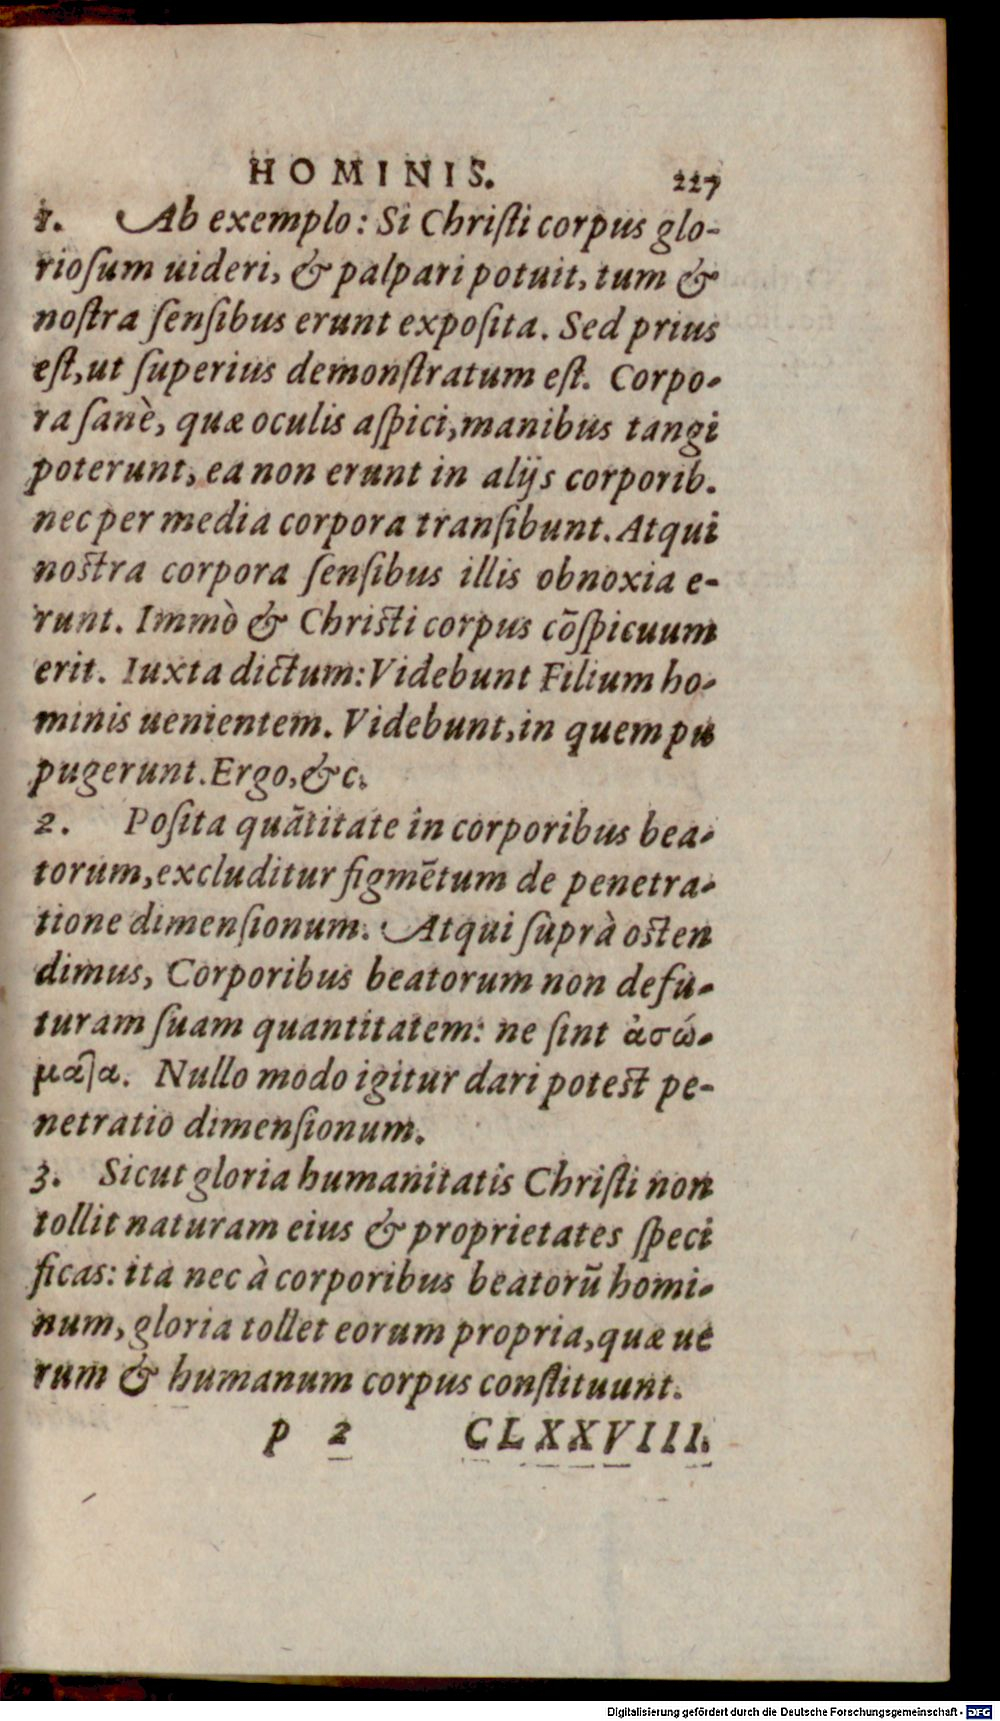 HOMINIS. 227
1. Ab exemplo: Si Chriſti corpus glo-
rioſum uideri, & palpari potuit, tum &
noſtra ſenſibus erunt expoſita. Sed prius
eſt, ut ſuperius demonſtratum eſt. Corpo-
ra ſanè, quæ oculis aſpici, manibus tangi
poterunt, ea non erunt in alijs corporib.
nec per media corpora tranſibunt. Atqui
noſtra corpora ſenſibus illis obnoxia e-
runt. Immò & Chriſti corpus cõſpicuum
erit. Iuxta dictum: Videbunt Filium ho-
minis uenientem. Videbunt, in quem pu
pugerunt. Ergo, &c.
2. Poſita quãtitate in corporibus bea-
torum, excluditur figmẽtum de penetra-
tione dimenſionum. Atqui ſuprà oſten
dimus, Corporibus beatorum non defu-
turam ſuam quantitatem: ne ſint ἀσώ-
μαῖα. Nullo modo igitur dari poteſt pe-
netratio dimenſionum.
3. Sicut gloria humanitatis Chriſti non
tollit naturam eius & proprietates ſpeci
ficas: ita nec à corporibus beatorũ homi-
num, gloria tollet eorum propria, quæ ue
rum & humanum corpus conſtituunt.
p 2 CLXXVIII.
Digitalisierung gefördert durch die Deutsche Forschungsgemeinschaft - DFG